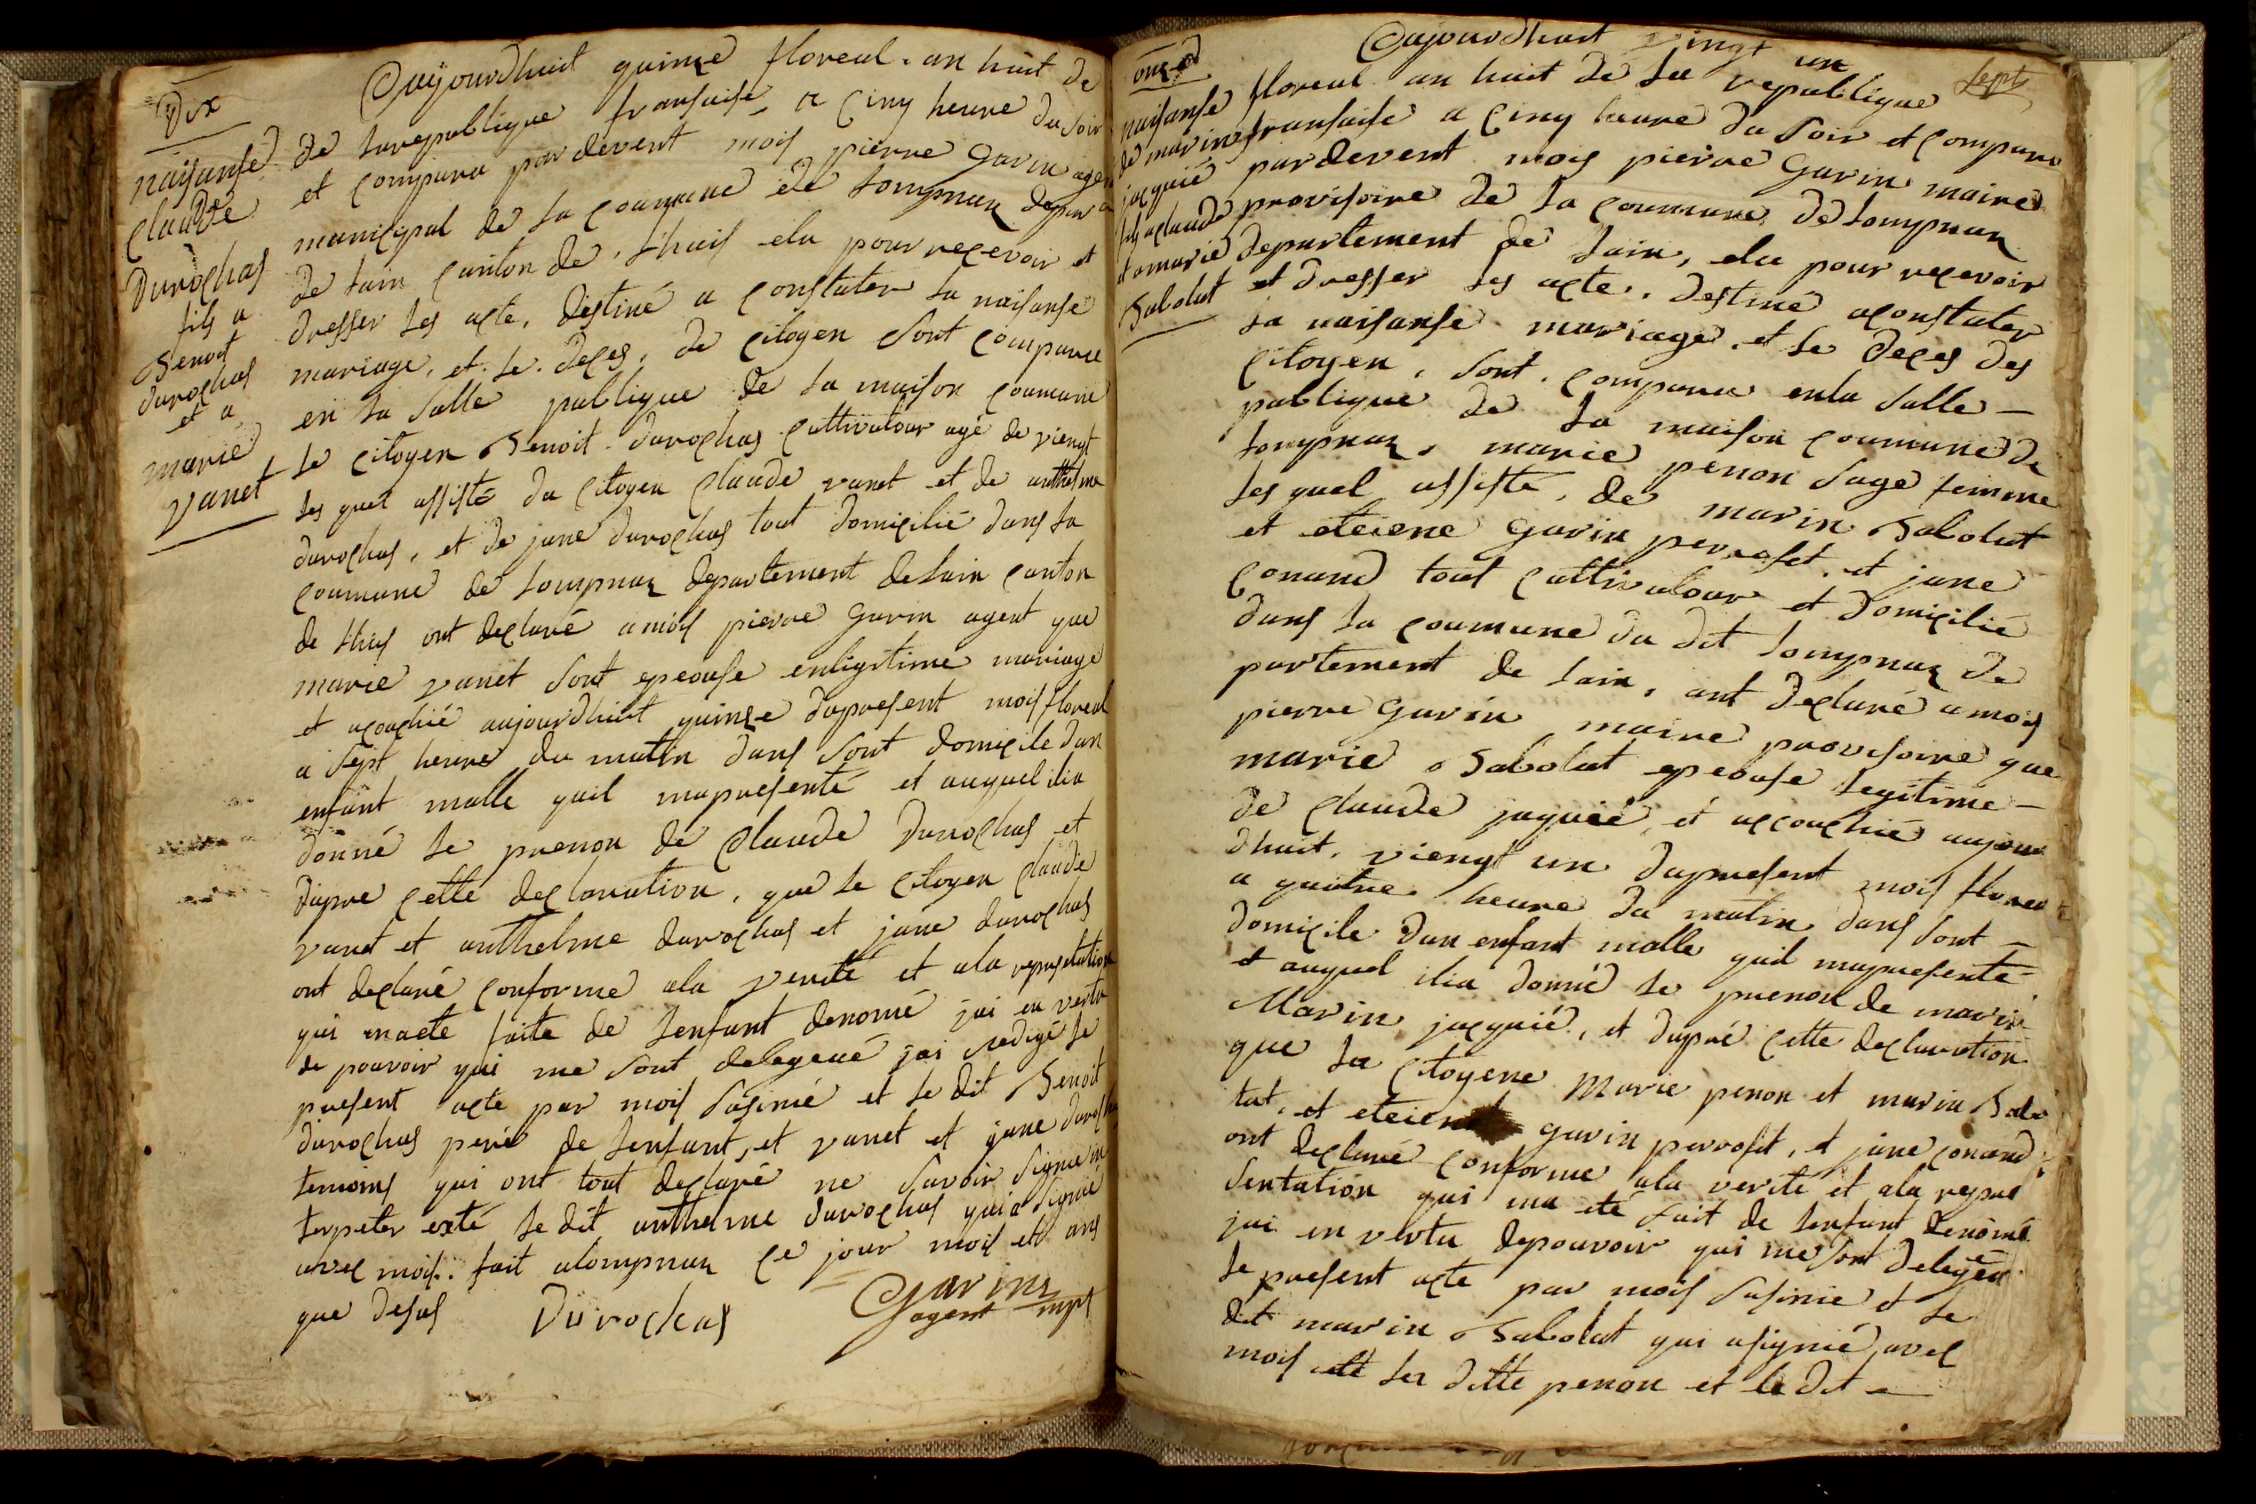 Dix
naisanse
claude
durochas
fils a
Benoit
durochas
et a
marie
vanet
Aujourdhuit quinze floreal . an huit de
de larepublique fransaise, a cinq heure du soir
et comparu par devent mois pierre Garin agent
municipal de la coumune de lompnaz depar
de lain canton de . lhuis elu pour recevoir et
dresser les acte, destiné a constater la naisanse
mariage, et . le . deces, de citoyen sont comparue
en la salle publique de la maison coumune
le citoyen Benoit durochas cultivatour agé de viengt
les quel assisté du citoyen claude vanet et de anthelme
durochas, et de jane durochas tout domicilié dans la
coumune de lompnaz departement delain canton
de lhuis ont declaré a mois pierre garin agent que
marie vanet sont epeouse enligitime mariage
et acouchié aujourdhuit quinze dupresent mois floreal
a sept heure du matin dans sont domicile dun
enfant malle quil mapresenté et auquel ilia
donné le prenon de claude durochas et
dapre cette declaration, que le citoyen claude
vanet et anthelme durochas et jane durochas
ont declaré conforme ala verité et ala representation
qui maeté faite de lenfant denomé jai en vertu
de pouvoir qui me sont delegeué jai redigé le
present acte par mois sousinié et le dit Benoit
durochas peré de lenfant, et vanet et jane durochas
temoins qui ont tout declaré ne savoir signie in
terpeter exté le dit anthelme durochas quia signié
avec mois . fait alompnaz ce jour mois et ans
que desus
Durochas
Garin
agent mpl
onze
naisanse
de marin
jacquié
fils aclaude
et amarie
Babolat
sept
Aujourdhuit vingt un
floreal an huit de la republique
fransaise a cinq heure du soir et comparu
pardevent mois pierre Garin maire
provisoire de la coumune de lompnaz
departement de lain, elu pour recevoir
et dresser les acte, destiné aconstater
la naisanse mariage, et le deces des
citoyen, sont . comparu enla salle –
publique de la maison coumune de
lompnaz, marie penon sage femme
les quel assisté, de marin Babolat
et eteiene garin perroset, et jane
conand tout cultivatour et domicilié
dans la coumune du dit lompnaz de
partement de lain, ont declaré a mois
pierre garin maire provisoire que
marie Babolat epeouse legitime –
de claude jaquié, et accouchié aujour
dhuit, viengt un dupresent mois floreal
a quatre heure du matin dans sont –
domicile dun enfant malle quil mapresente
et auquel ilia donné le prenon de marin
Marin jacquié, et dapré cette declaration
que la citoyene Marie penon et marin Babo
lat, et eteiene garin perroset, et jane conand
ont declaré conforme ala verité et ala repre
sentation qui ma eté fait de lenfant denomé
jai en vertu depouvoir qui me sont delegéu
le present acte par mois susinie et le
dit marin Babolat qui asignié avec
mois elle la ditte penon et le dit –